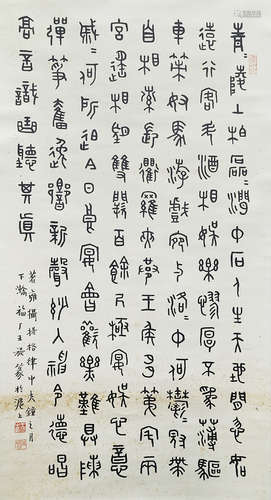 青=陵上柏磊=澗中石人生天地間忽如
遠行客斗酒相娛樂聊厚不為薄驅
車策駑馬游戲宛與洛=中何鬱=冠帶
自相索長衢羅夾巷王侯多第宅兩
宮遙相望雙闕百餘尺極宴娛心意
戚=何所迫今日良宴會歡樂難具陳
彈箏奮逸響新聲妙入神令德唱
高言識曲聽其真
律中夾鐘之月
王 篆於滬上